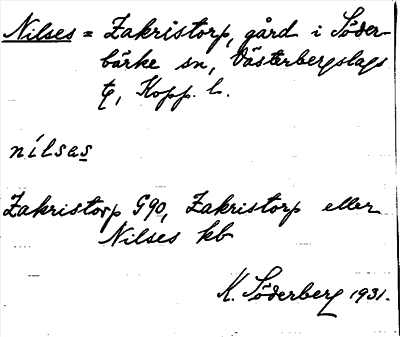 Nilses = Zakristorp, gård i Söder-
bärke sn, Västerbergslags
tg, Kopp. l.
nilsas
Zakristorp G90, Zakristorp eller
Nilses kb
K. Söderberg 1931.